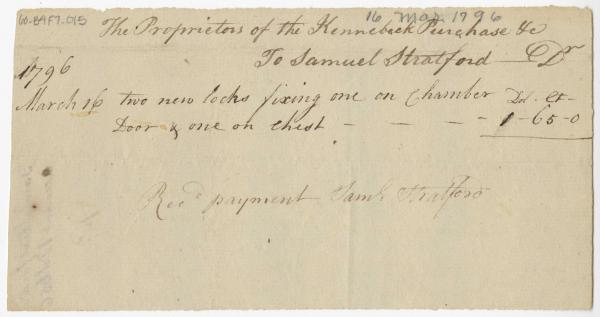 60-B4F7-015
16 Mar 1796
The Proprietors of the Kennebeck Purchase &c
To Samuel Stratford Dr
1796
March 16 two new locks fixing one on Chamber Dol. Ct
Door & one on chest - - - - 1-65-0
Recd payment Saml Stratford